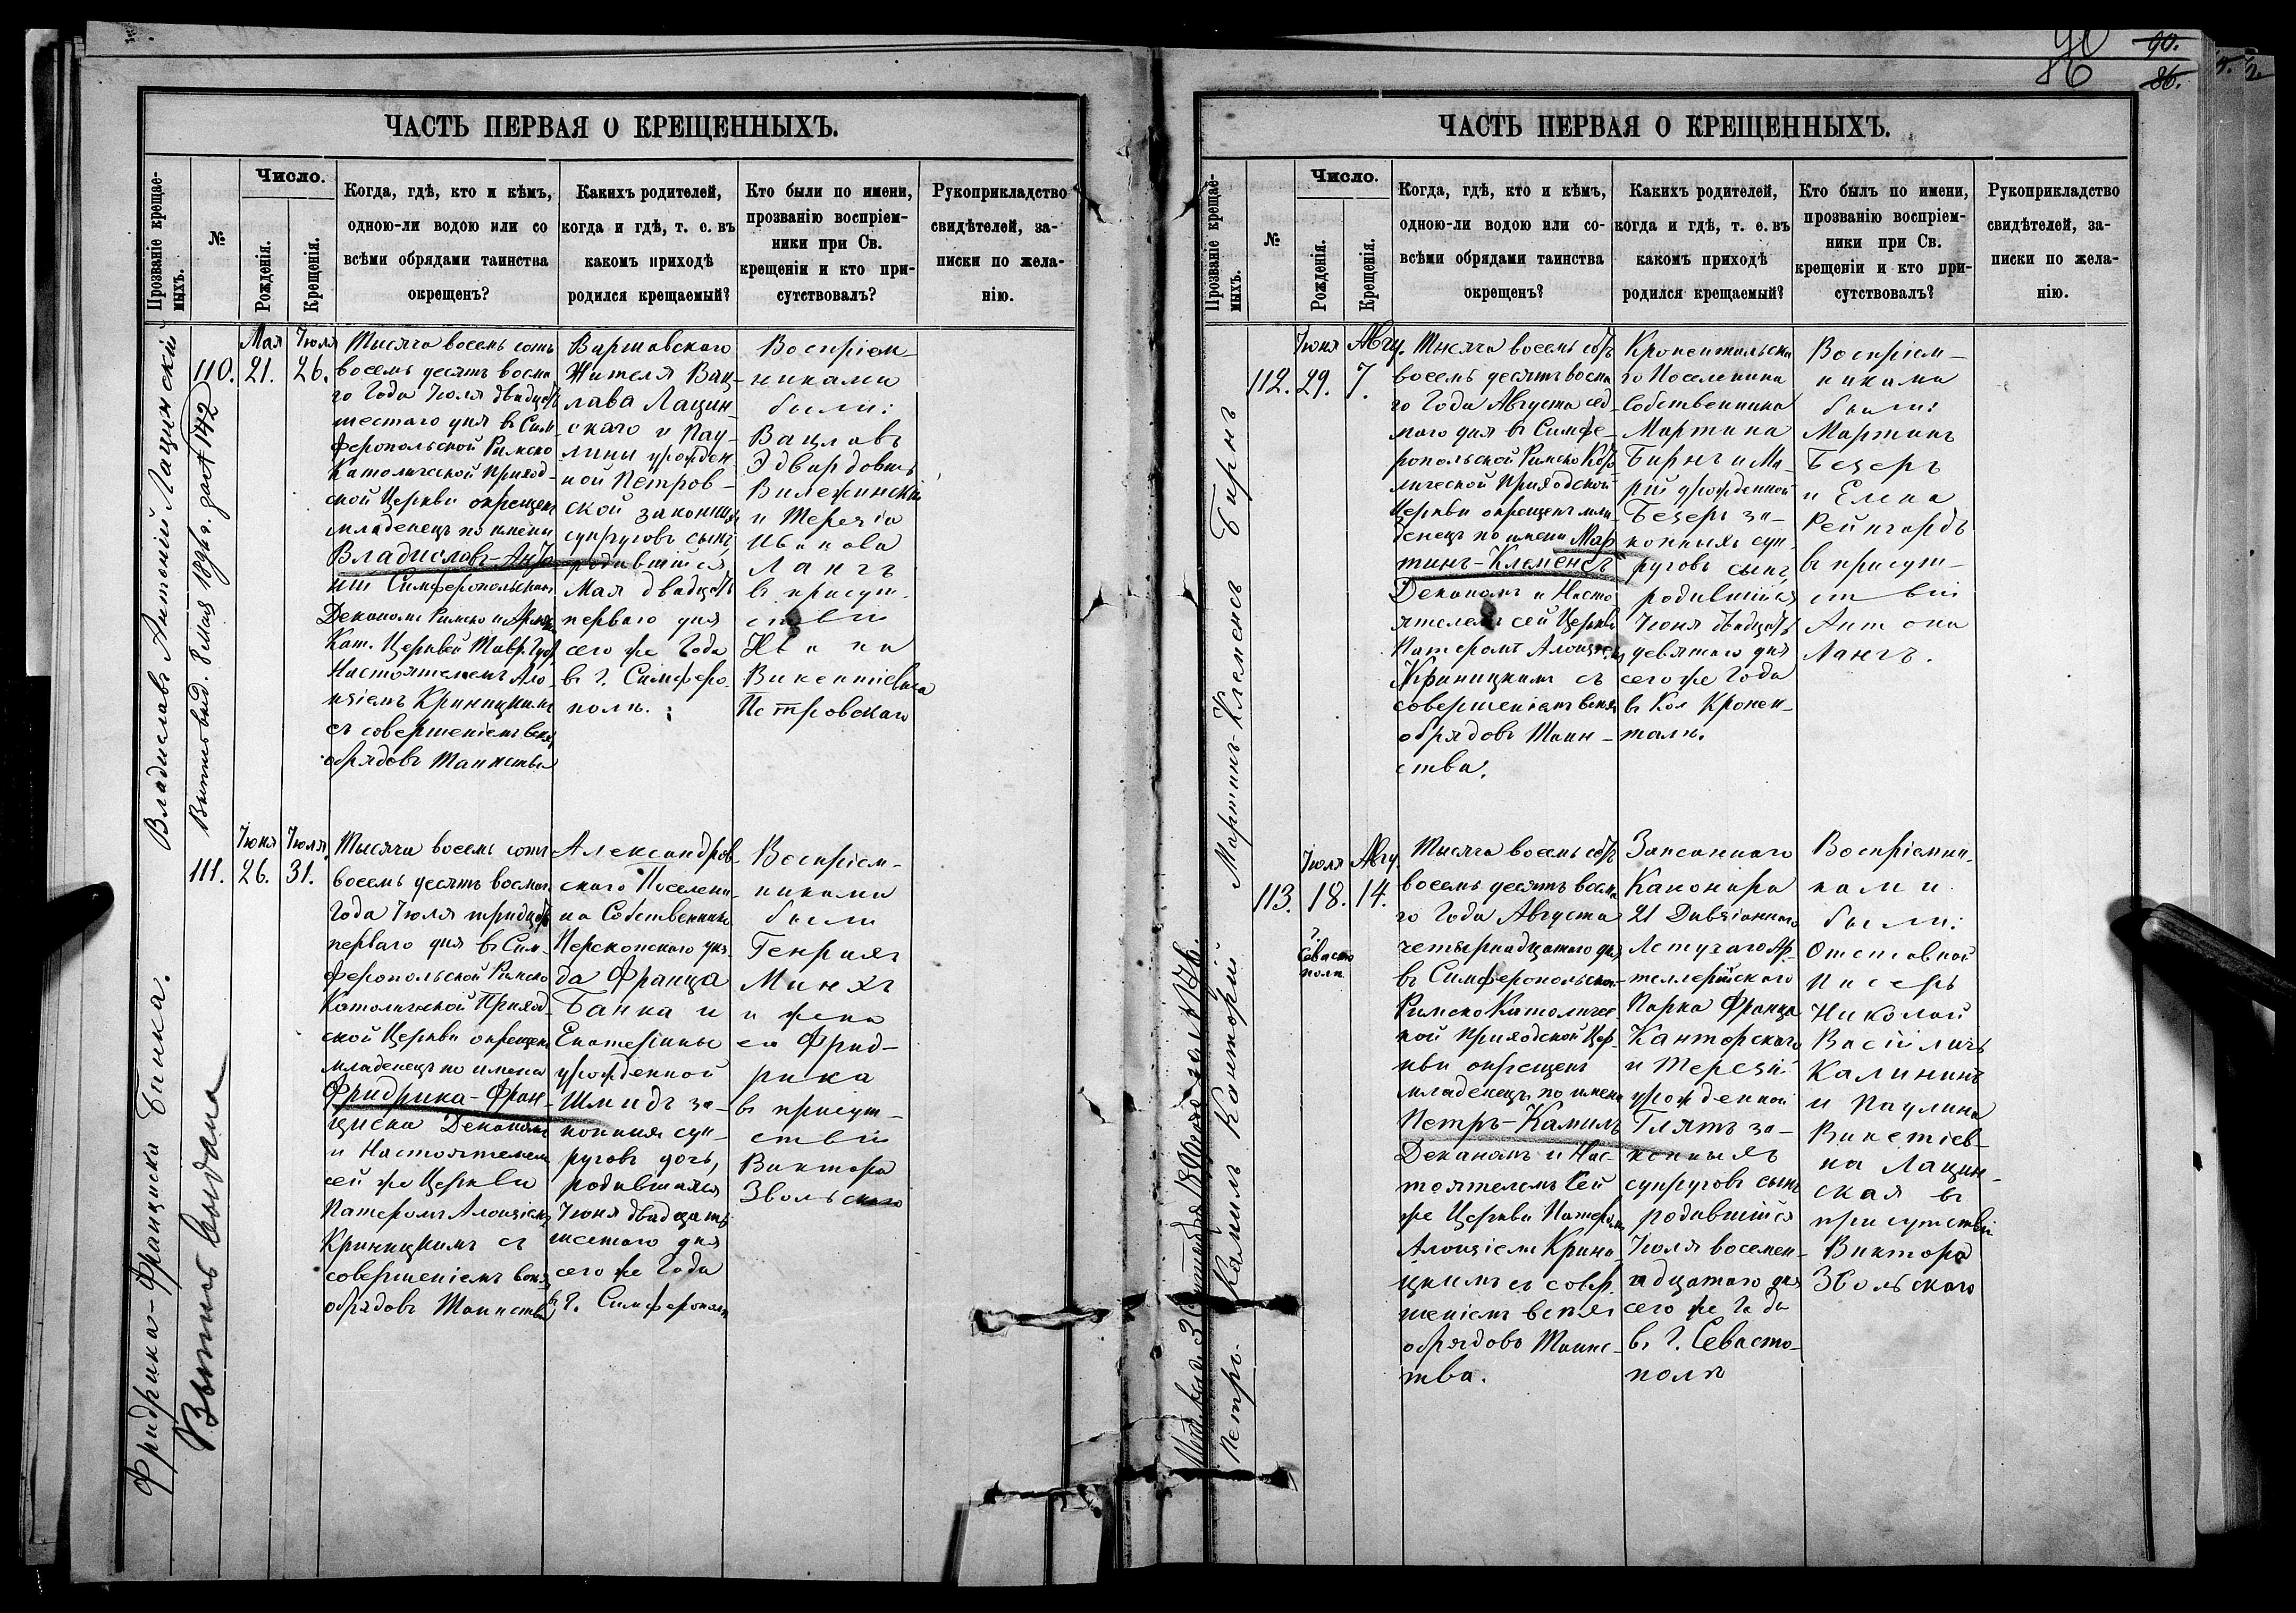 ЧАСТЬ ПЕРВАЯ О КРЕЩЕННЫХЪ.
Прозваніе крещае-
мыхъ.
№
Число.
Рожденія.
Крещенія.
Когда, гдѣ, кто и кѣмъ,
одною-ли водою или со
всѣми обрядами таинства
окрещенъ?
Какихъ родителей,
когда и гдѣ, т. е. въ
какомъ приходѣ
родился крещаемый?
Кто были по имени,
прозванію воспріем-
ники при Св.
крещеніи и кто при-
сутствовалъ?
Рукоприкладство
свидѣтелей, за-
писки по жела-
нію.
Владиславъ Антоній Лацинскій
110.
Мая
21.
Іюля
26.
Тысяча восемь сотъ
восемь десятъ восма
го Года Іюля двадцать
шестаго дня въ Сим
феропольской Римско
Католической Приход-
ской Церкви окрещенъ
младенецъ по имени
Владиславъ-Анто
ній Симферопольскимъ
Деканомъ Римско и Армян
Кат. Церквей Тавр. Губ.
Настоятелемъ Ало-
изіемъ Криницкимъ
съ совершеніемъ всѣхъ
обрядовъ Таинства
Варшавскаго
Жителя Вац-
лава Лацин-
скаго и Пау-
лины урожден
ной Петров-
ской законныхъ
супруговъ сынъ,
родившійся
Мая двадцать
перваго дня
сего же Года
въ г. Симферо
поль.
Воспріем-
никами
были:
Вацлавъ
Эдвардовичъ
Вилежинскій
и Терезія
Иванова
Лангъ
въ присут-
ствіи
Ивана
Викентіевича
Петровскаго
Фридрика-Франциска Банка.
Выпись выдана
111.
Іюня
26.
Іюля
31.
Тысяча восемь сотъ
восемь десятъ восмаго
Года Іюля тридцать
перваго дня въ Сим-
феропольской Римско
Католической Приход-
ской Церкви окрещенъ
младенецъ по имени
Фридрика-Фран-
циска Деканомъ
и Настоятелемъ
сей же Церкви
Патеромъ Алоизіемъ
Криницкимъ съ
совершеніемъ всѣхъ
обрядовъ Таинства
Александров-
скаго Поселяни-
на Собственника
Перекопскаго уѣз-
да Франца
Банка и
Екатерины
урожденной
Шмидъ за-
конныхъ суп-
руговъ дочь,
родившаяся
Іюня двадцать
шестаго дня
сего же Года
въ г. Симферополѣ
Воспріем-
никами
были
Генрихъ
Минхъ
и жена
его Фрид-
рика
въ присут-
ствіи
Виктора
Звольскаго
90.
86.
ЧАСТЬ ПЕРВАЯ О КРЕЩЕННЫХЪ.
Прозваніе крещае-
мыхъ.
№
Число.
Рожденія.
Крещенія.
Когда, гдѣ, кто и кѣмъ,
одною-ли водою или со-
всѣми обрядами таинства
окрещенъ?
Какихъ родителей,
когда и гдѣ, т. е. въ
какомъ приходѣ
родился крещаемый?
Кто былъ по имени,
прозванію воспріем-
ники при Св.
крещеніи и кто при-
сутствовалъ?
Рукоприкладство
свидѣтелей, за-
писки по жела-
нію.
Мартинъ-Клеменсъ Бирнъ
112.
Іюня
29.
Авгу.
7.
Тысяча восемь сотъ
восемь десятъ восма
го Года Августа сед-
маго дня въ Симфе-
ропольской Римско Като
лической Приходской
Церкви окрещенъ мла-
денецъ по имени Мар
тинъ-Клеменсъ
Деканомъ и Насто
ятелемъ сей Церкви
Патеромъ Алоизіемъ
Криницкимъ съ
совершеніемъ всѣхъ
обрядовъ Таин-
ства.
Кронентальска
го Поселянина
Собственника
Мартина
Бирнъ и Ма-
ріи урожденной
Бецеръ за-
конныхъ суп-
руговъ сынъ,
родившійся
Іюня двадцать
девятаго дня
сего же Года
въ Кол Кронен-
таль.
Воспріем-
никами
были:
Мартинъ
Бецеръ
и Елена
Рейнгардъ
въ присут-
ствіи
Антона
Лангъ.
Петръ-Камилъ Канторскій
113.
Іюля
18.
г.
Севасто
поль
Авгу.
14.
Тысяча восемь сотъ
восемь десятъ восма
го Года Августа
четырнадцатаго дня
въ Симферопольской
Римско Католичес
кой Приходской Цер-
кви окрещенъ
младенецъ по имени
Петръ-Камилъ
Деканомъ и Нас-
тоятелемъ Сей
же Церкви Патеромъ
Алоизіемъ Крини
цкимъ съ совер
шеніемъ всѣхъ
обрядовъ Таинс-
тва.
Запаснаго
Канонира
21 Дивизіоннаго
Летучаго Ар-
тиллерійскаго
Парка Франца
Канторскаго
и Терезіи
урожденной
Глятъ за-
конныхъ
супруговъ сынъ
родившійся
Іюля восемн-
адцатаго дня
сего же Года
въ г. Севасто-
полѣ
Воспріемни-
ками
были:
Отставной
Писарь
Николай
Васіличъ
Калининъ
и Паулина
Викетіев-
на Лацин-
ская въ
присутствіи
Виктора
Звольскаго